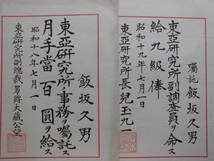 囑託 飯坂久男
東亞研究所副調査員ヲ命ス
給九級俸
昭和十九年七月一日
東亞研究所
飯坂久男
東亞研究所ノ事務ヲ囑託ス
月手當百圓ヲ給ス
昭和十八年七月一日
東亞研究所副總裁男爵大藏公望